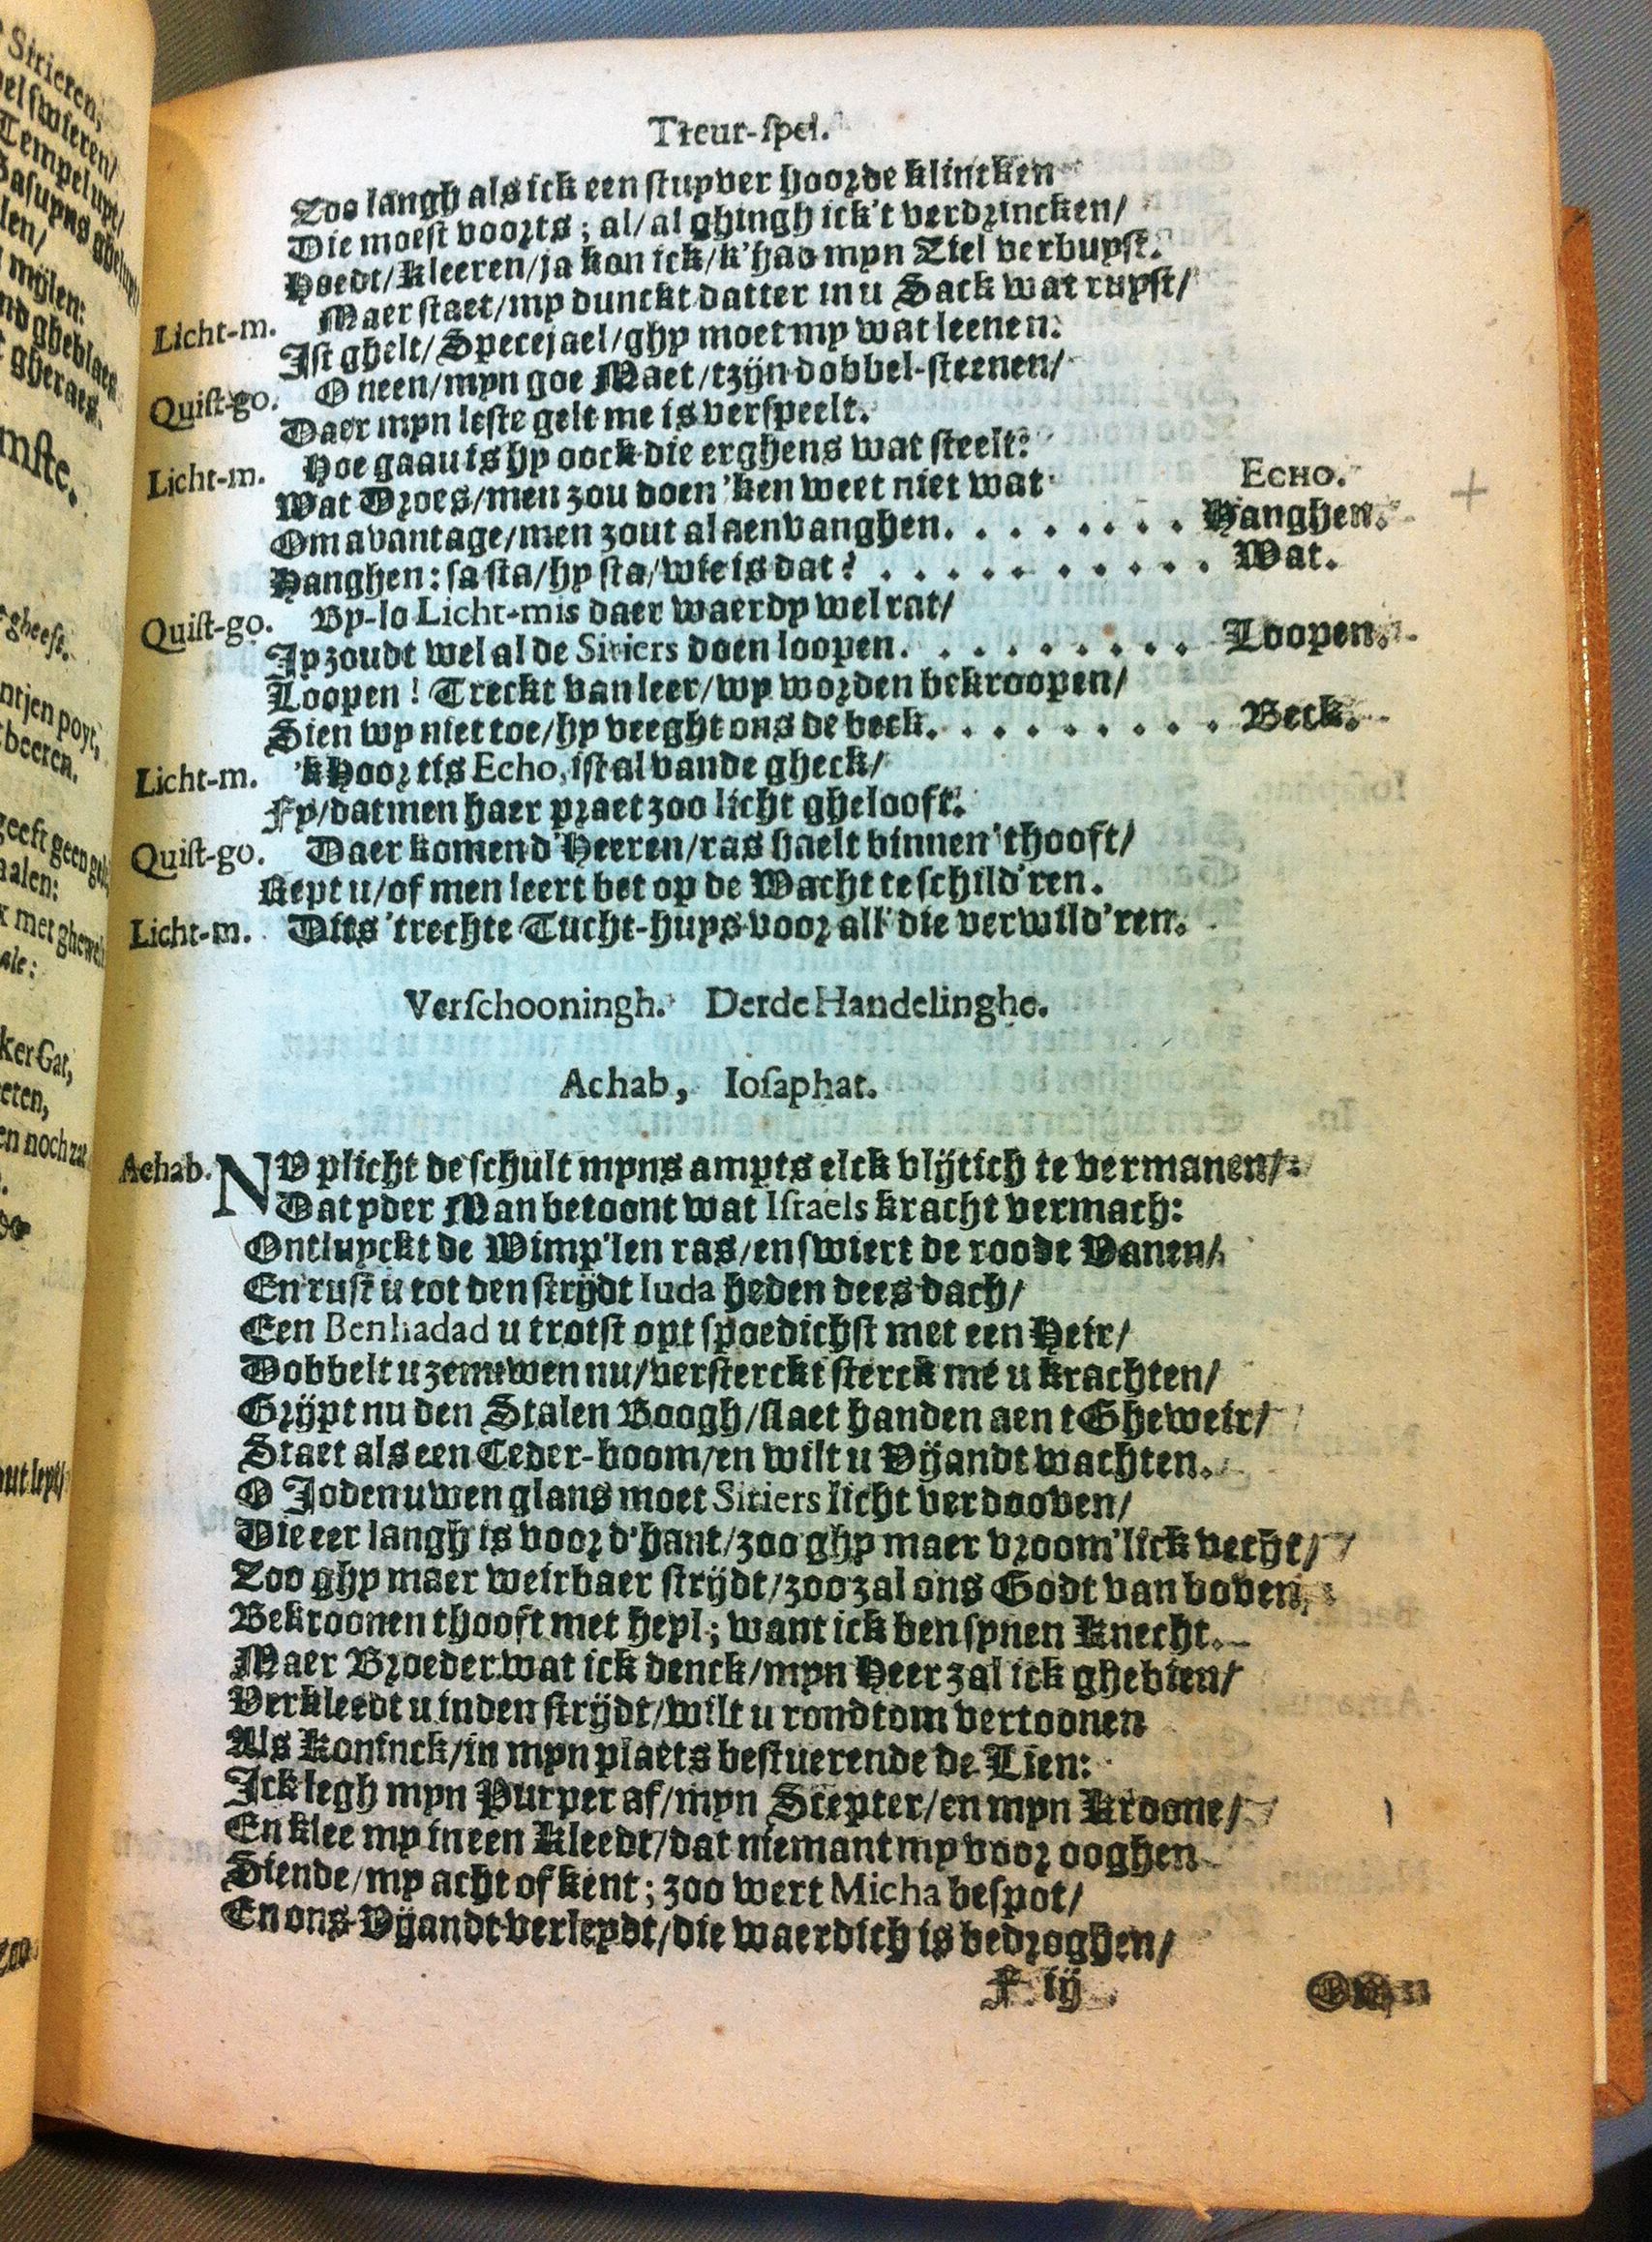 Treur-spel.
Zoo langh als ick een stuyver hoorde klincken
Die moest voorts; al/al ghingh ick't verdrincken/
Hoedt/kleeren/ja kon ick/k'had myn Ziel verbuyst.
Licht-m. Maer staet/my dunckt datter in u Sack wat ruyst/
Ist ghelt/Specejael/ghy moet my wat leenen.
Quist-go. O neen/myn goe Maet/tzijn dobbel-steenen/
Daer myn leste gelt me is verspeelt.
Licht-m. Hoe gaau is hy oock die erghens wat steelt:
Wat Droes/men zou doen 'ken weet niet wat
ECHO.
Om avantage/men zout al aenvanghen. . . . . . . . Hanghen.
Hanghen: sa sta/hy sta/wie is dat? . . . . . . . . . . . Wat.
Quist-go. By-lo Licht-mis daer waerdy wel rat/
Jy zoudt wel al de Siriers doen loopen. . . . . . . . . Loopen.
Loopen! Treckt van leer/wy worden bekroopen/
Sien wy niet toe/hy veeght ons de beck. . . . . . . . . Beck.
Licht-m. 'k Hoor tis Echo, ist al vande gheck/
Fy/datmen haer praet zoo licht ghelooft.
Quist-go. Daer komen d'Heeren/ras haelt binnen 'thooft/
Rept u/of men leert bet op de Wacht te schild'ren.
Licht-m. Dits 'trechte Tucht-huys voor all' die verwild'ren.
Verschooningh. Derde Handelinghe.
Achab, Iosaphat.
Achab. NV plicht de schult myns ampts elck vlijtich te vermanen/
Dat yder Man betoont wat Israels kracht vermach:
Ontluyckt de Wimp'len ras/en swiert de roode Vanen/
En rust u tot den strijdt Iuda heden dees dach/
Een Benhadad u trotst opt spoedichst met een Heir/
Dobbelt u zenuwen nu/versterckt sterck me u krachten/
Grijpt nu den Stalen Boogh/slaet handen aen t Gheweir/
Staet als een Ceder-boom/en wilt u Vijandt wachten.
O Joden uwen glans moet Siriers licht verdooven/
Die eer langh is voor d'hant/zoo ghy maer vroom'lick vecht/
Zoo ghy maer weirbaer strijdt/zoo zal ons Godt van boven,
Bekroonen thooft met heyl; want ick ben synen Knecht.
Maer Broeder wat ick denck/myn Heer zal ick ghebien/
Verkleedt u in den strijdt/wilt u rondtom vertoonen
Als Koninck/in myn plaets bestuerende de Lien:
Ick legh myn Purper af/myn Scepter/en myn Kroone/
En klee my in een Kleedt/dat niemant my voor ooghen
Siende/my acht of kent; zoo wert Micha bespot/
En ons Vijandt verleydt/die waerdich is bedroghen/
F iij